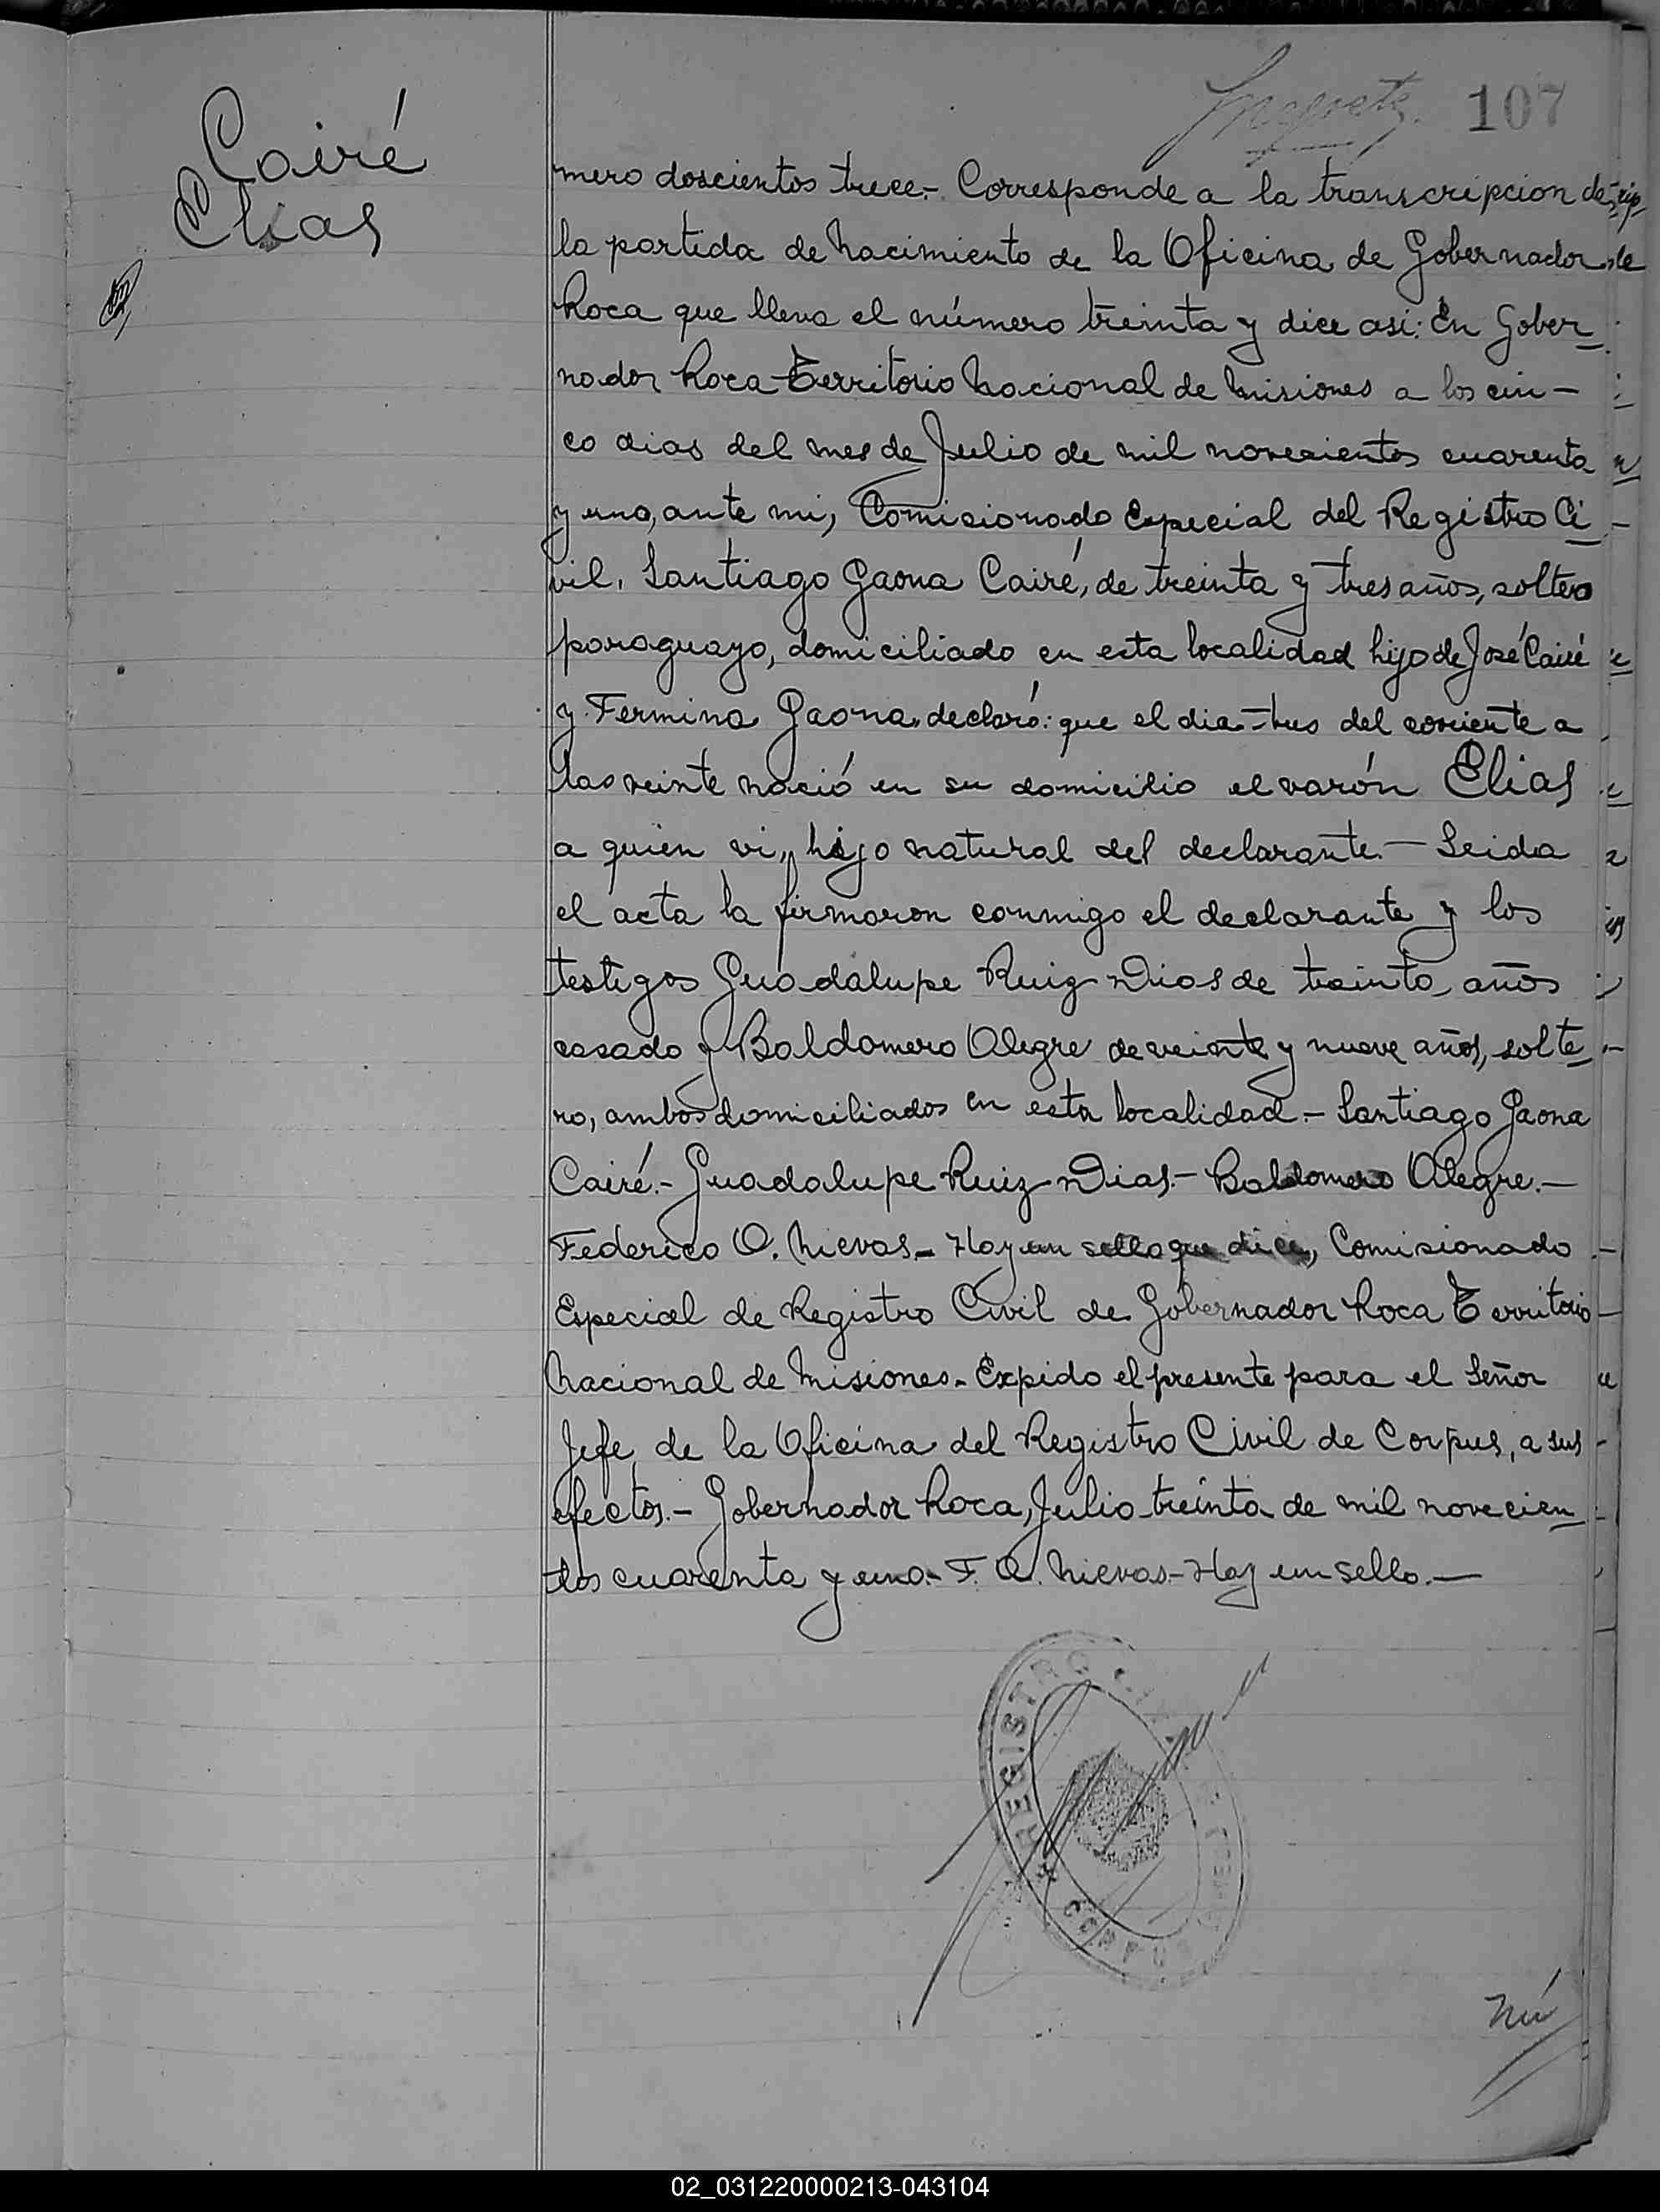 107
Cairé
Elias
mero doscientos trece.- Corresponde a la transcripcion de
la partida de Nacimiento de la Oficina de Gobernador
Roca que lleva el número treinta y dice asi: En Gober_
nador Roca Territorio Nacional de Misiones a los cin-
co dias del mes de Julio de mil novecientos cuarenta
y uno, ante mi, Comisionado Especial del Registro Ci_
vil, Santiago Gaona Cairé, de treinta y tres años, soltero
paraguayo, domiciliado en esta localidad hijo de José Cairé
y Fermina Gaona, declaró: que el dia tres del corriente a
las veinte nació en su domicilio el varón Elias
a quien vi, hijo natural del declarante.- Leida
el acta la firmaron conmigo el declarante y los
testigos Guadalupe Ruiz Dias de treinta años
casado y Baldomero Alegre de veinte y nueve años, solte_
ro, ambos domiciliados en esta localidad.- Santiago Gaona
Cairé.- Guadalupe Ruiz Dias.- Baldomero Alegre.-
Federico O. Nievas.- Hay un sello que dice, Comisionado
Especial de Registro Civil de Gobernador Roca Territorio
Nacional de Misiones.- Expido el presente para el Señor
Jefe de la Oficina del Registro Civil de Corpus, a sus
efectos.- Gobernador Roca, Julio treinta de mil novecien_
tos cuarenta y uno.- F. O. Nievas.- Hay un sello.-
REGISTRO
CORPUS
Nú
02_031220000213-043104